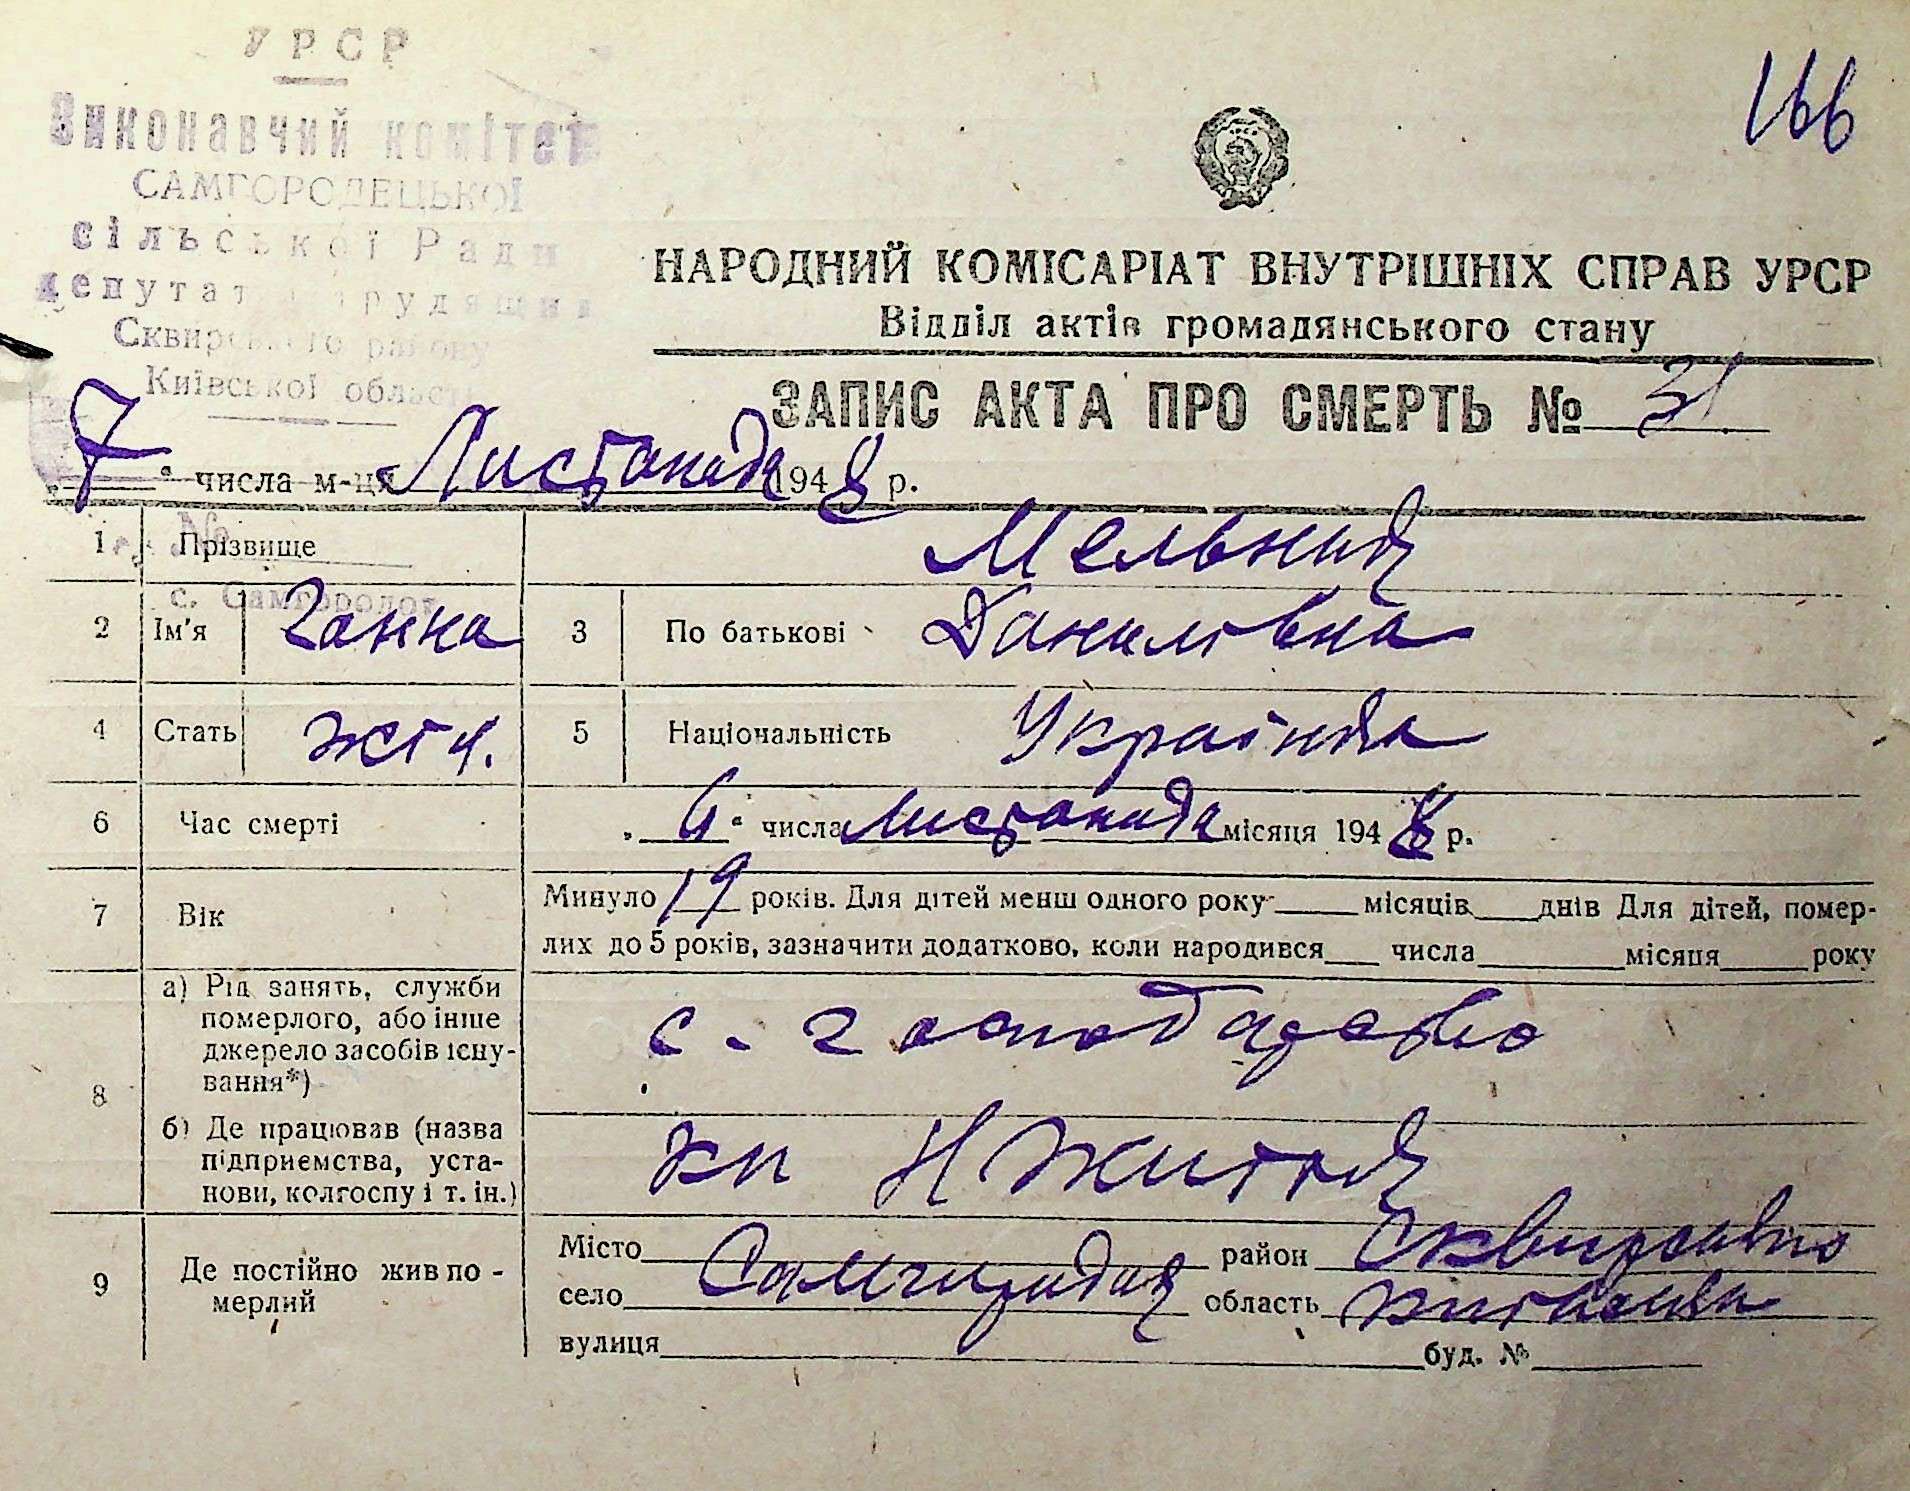 УРСР
Виконавчий комітет
САМГОРОДЕЦЬКОЇ
сільської Ради
депутатів трудящих
Сквирського району
Київської області
166
НАРОДНИЙ КОМІСАРІАТ ВНУТРІШНІХ СПРАВ УРСР
Відділ актів громадянського стану
ЗАПИС АКТА ПРО СМЕРТЬ № 31
„7“ числа м-ця Листопада 1948 р.
№
с. Самгородок
1 Прізвище Мельник
2 Ім'я Ганна 3 По батькові Данилівна
4 Стать жін. 5 Національність Українка
6 Час смерті „6“ числа Листопада місяця 1948 р.
7 Вік Минуло 19 років. Для дітей менш одного року ___ місяців ___ днів Для дітей, помер-
лих до 5 років, зазначити додатково, коли народився ___ числа ___ місяця ___ року
8 а) Рід занять, служби
померлого, або інше
джерело засобів існу-
вання*)
с. господарство
б) Де працював (назва
підприємства, уста-
нови, колгоспу і т. ін.)
Н Життя
9 Де постійно жив по-
мерлий
Місто ___ район Сквирський
село Самгородок область Київська
вулиця ___ буд. № ___